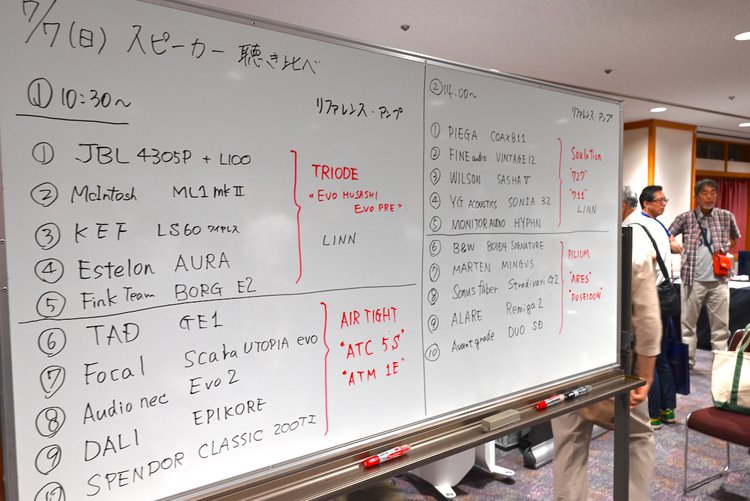 7/7(日) スピーカー 聴き比べ
① 10:30～
リファレンス・アンプ
① JBL 4305P + L100
② McIntosh ML1 mk II
③ KEF LS60 ワイヤレス
④ Estelon AURA
⑤ Fink Team BORG E2
TRIODE
"EVO MUSASHI
EVO PRE"
LINN
⑥ TAD GE1
⑦ Focal Scala UTOPIA evo
⑧ Audio nec Evo 2
⑨ DALI EPIKORE
⑩ SPENDOR CLASSIC 200TI
AIR TIGHT
"ATC 5S"
"ATM 1E"
② 14:00～
リファレンス・アンプ
① PIEGA COAX811
② FINE audio VINTAGE 12
③ WILSON SASHA V
④ YG ACOUSTICS SONIA 3.2
⑤ MONITOR AUDIO HYPHN
Soulution
"727"
"711"
LINN
⑥ B&W 801D4 SIGNATURE
⑦ MARTEN MINGUS
⑧ Sonus faber Stradivari G2
⑨ ALARE Remiga 2
⑩ Avantgrade DUO SD
PILIUM
"ARES"
"POSEIDON"